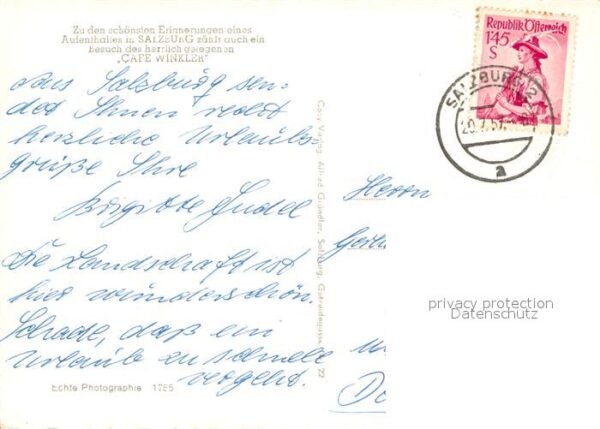 Zu den schönsten Erinnerungen eines
Aufenthaltes in SALZBURG zählt auch ein
Besuch des herrlich gelegenen
„CAFE WINKLER"
Aus Salzburg sen-
det Ihnen recht
herzliche Urlaubs-
grüße Ihre
Brigitte
Die Landschaft ist
hier wunderschön.
Schade, daß ein
Urlaub zu schnell
vergeht.
Echte Photographie 1785
Cosy Verlag Alfred Gründler, Salzburg, Getreidegasse 22
Republik Österreich
1'45
S
SALZBURG 2
20.7.57
a
Herrn
privacy protection
Datenschutz